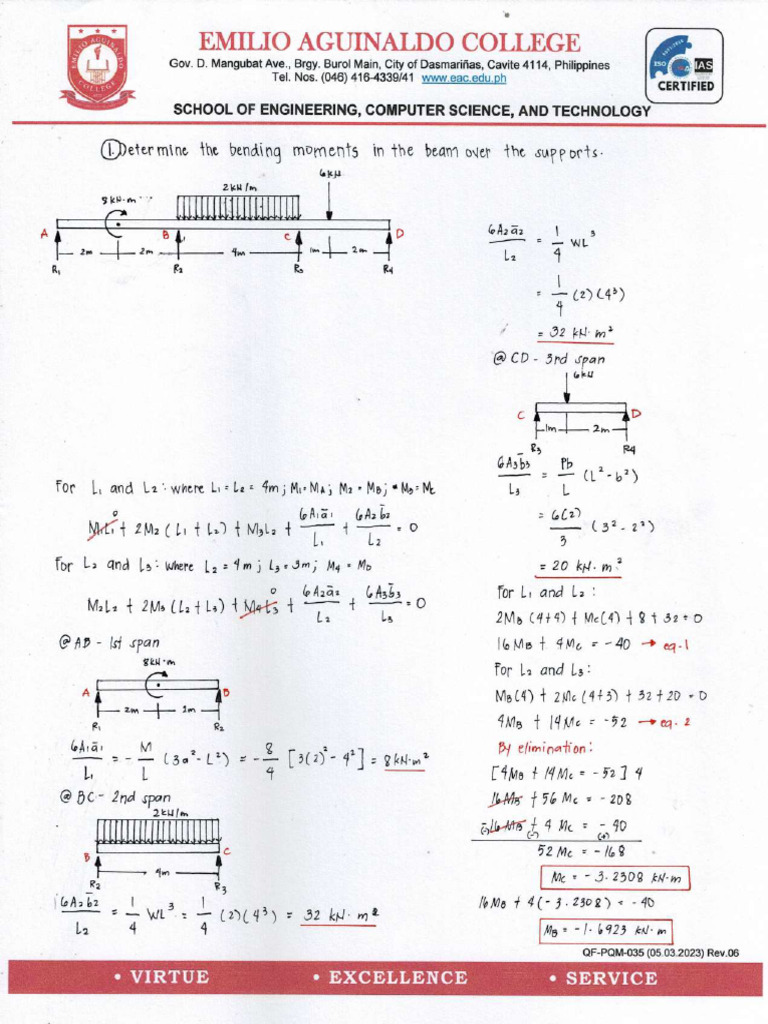 EMILIO AGUINALDO COLLEGE
Gov. D. Mangubat Ave., Brgy. Burol Main, City of Dasmariñas, Cavite 4114, Philippines
Tel. Nos. (046) 416-4339/41 www.eac.edu.ph
EMILIO AGUINALDO
COLLEGE
ISO
IAS
CERTIFIED
SCHOOL OF ENGINEERING, COMPUTER SCIENCE, AND TECHNOLOGY
1. Determine the bending moments in the beam over the supports.
8 kN·m
2 kN/m
6 kN
A B C D
2m 2m 4m 1m 2m
R1 R2 R3 R4
For L1 and L2: where L1 = L2 = 4m; M1 = MA; M2 = MB; M3 = MC
M1L1 0 + 2M2 (L1 + L2) + M3L2 + 6A1ā1/L1 + 6A2b̄2/L2 = 0
For L2 and L3: where L2 = 4m; L3 = 3m; M4 = MD
M2L2 + 2M3 (L2 + L3) + M4L3 0 + 6A2ā2/L2 + 6A3b̄3/L3 = 0
@ AB - 1st span
8 kN·m
A B
2m 2m
R1 R2
6A1ā1/L1 = - M/L (3a² - L²) = - 8/4 [3(2)² - 4²] = 8 kN·m²
@ BC - 2nd span
2 kN/m
B C
4m
R2 R3
6A2b̄2/L2 = 1/4 WL³ = 1/4 (2)(4³) = 32 kN·m²
6A2ā2/L2 = 1/4 WL³
= 1/4 (2)(4³)
= 32 kN·m²
@ CD - 3rd span
6 kN
C D
1m 2m
R3 R4
6A3b̄3/L3 = Pb/L (L² - b²)
= 6(2)/3 (3² - 2²)
= 20 kN·m²
For L1 and L2:
2MB (4+4) + MC(4) + 8 + 32 = 0
16MB + 4MC = -40 → eq. 1
For L2 and L3:
MB(4) + 2MC (4+3) + 32 + 20 = 0
4MB + 14MC = -52 → eq. 2
By elimination:
[4MB + 14MC = -52] 4
16MB + 56MC = -208
(-) 16MB + (-) 4MC = - (+) 40
52MC = -168
MC = -3.2308 kN·m
16MB + 4(-3.2308) = -40
MB = -1.6923 kN·m
QF-PQM-035 (05.03.2023) Rev.06
• VIRTUE • EXCELLENCE • SERVICE